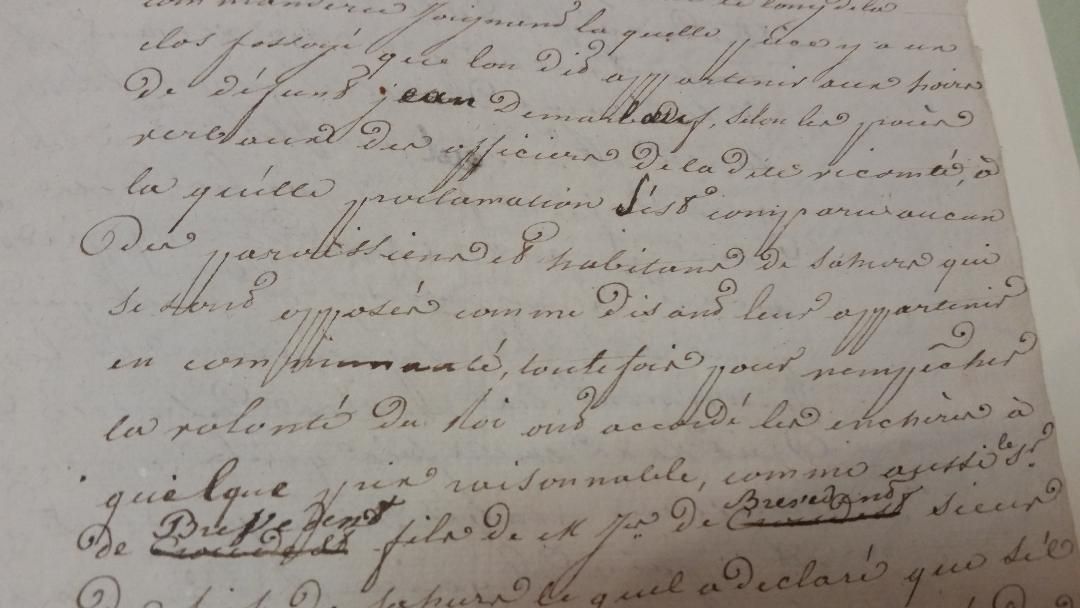 commanderie joignant la quelle pièce y a un
clos fossoyé que lon dit appartenir aux hoirs
De défunt jean Demarbeuf, selon les procès
verbaux des officiers De la dite vicomté, à
la quélle proclamation s'ést comparu aucun
Des paroissiens et habitans de sahurs qui
se sont opposés comme disant leur appartenir
en communauté, toutefois pour nempêcher
la volonté du Roi ont accordé les enchères à
quelque prix raisonnable, comme aussi le Sr
de Brevedent fils de M Jn de Brevedent sieur
de sahurs le quel a declaré que s'il